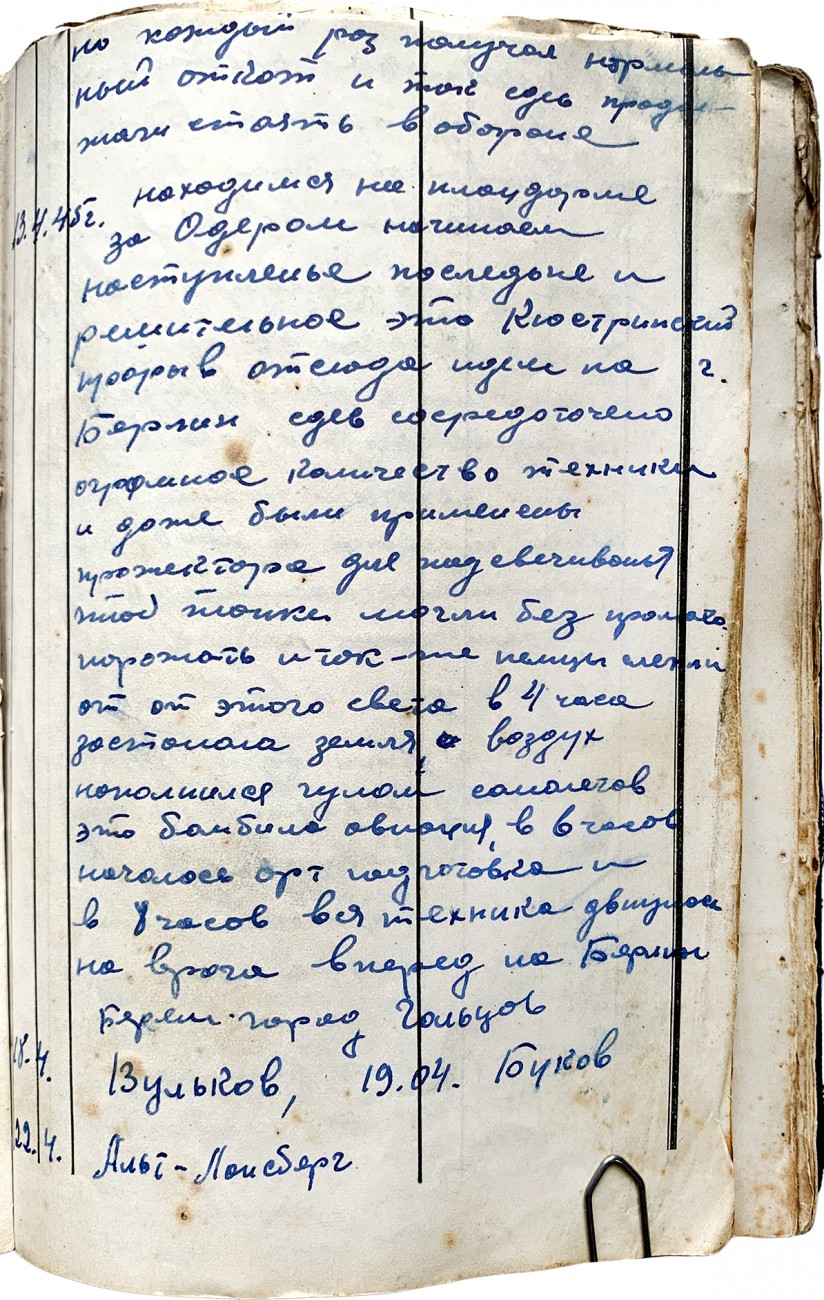 но каждый раз получал нормаль
ный откат и так сдесь продол-
жали стоять в обороне
13.4.45г. находимся на плацдарме
за Одером начинаем
наступленье последьне и
решительное это Кюстринский
прорыв отсюда идем на г.
Берлин сдесь сосредоточено
огромное количество техники
и даже были применены
прожектора для подсвечиванья
чтоб танки могли без промаха
поражать и так-же немцы слепли
от от этого света в 4 часа
застонала земля, а воздух
наполнился гулом самолетов
это бамбила авиация, в 6 часов
началось арт подготовка и
в 8 часов вся техника двинулась
на врага вперед на Берлин
Берем город Гольцов
18.4. Вульков, 19.04. Буков
22.4. Альт-Лансберг